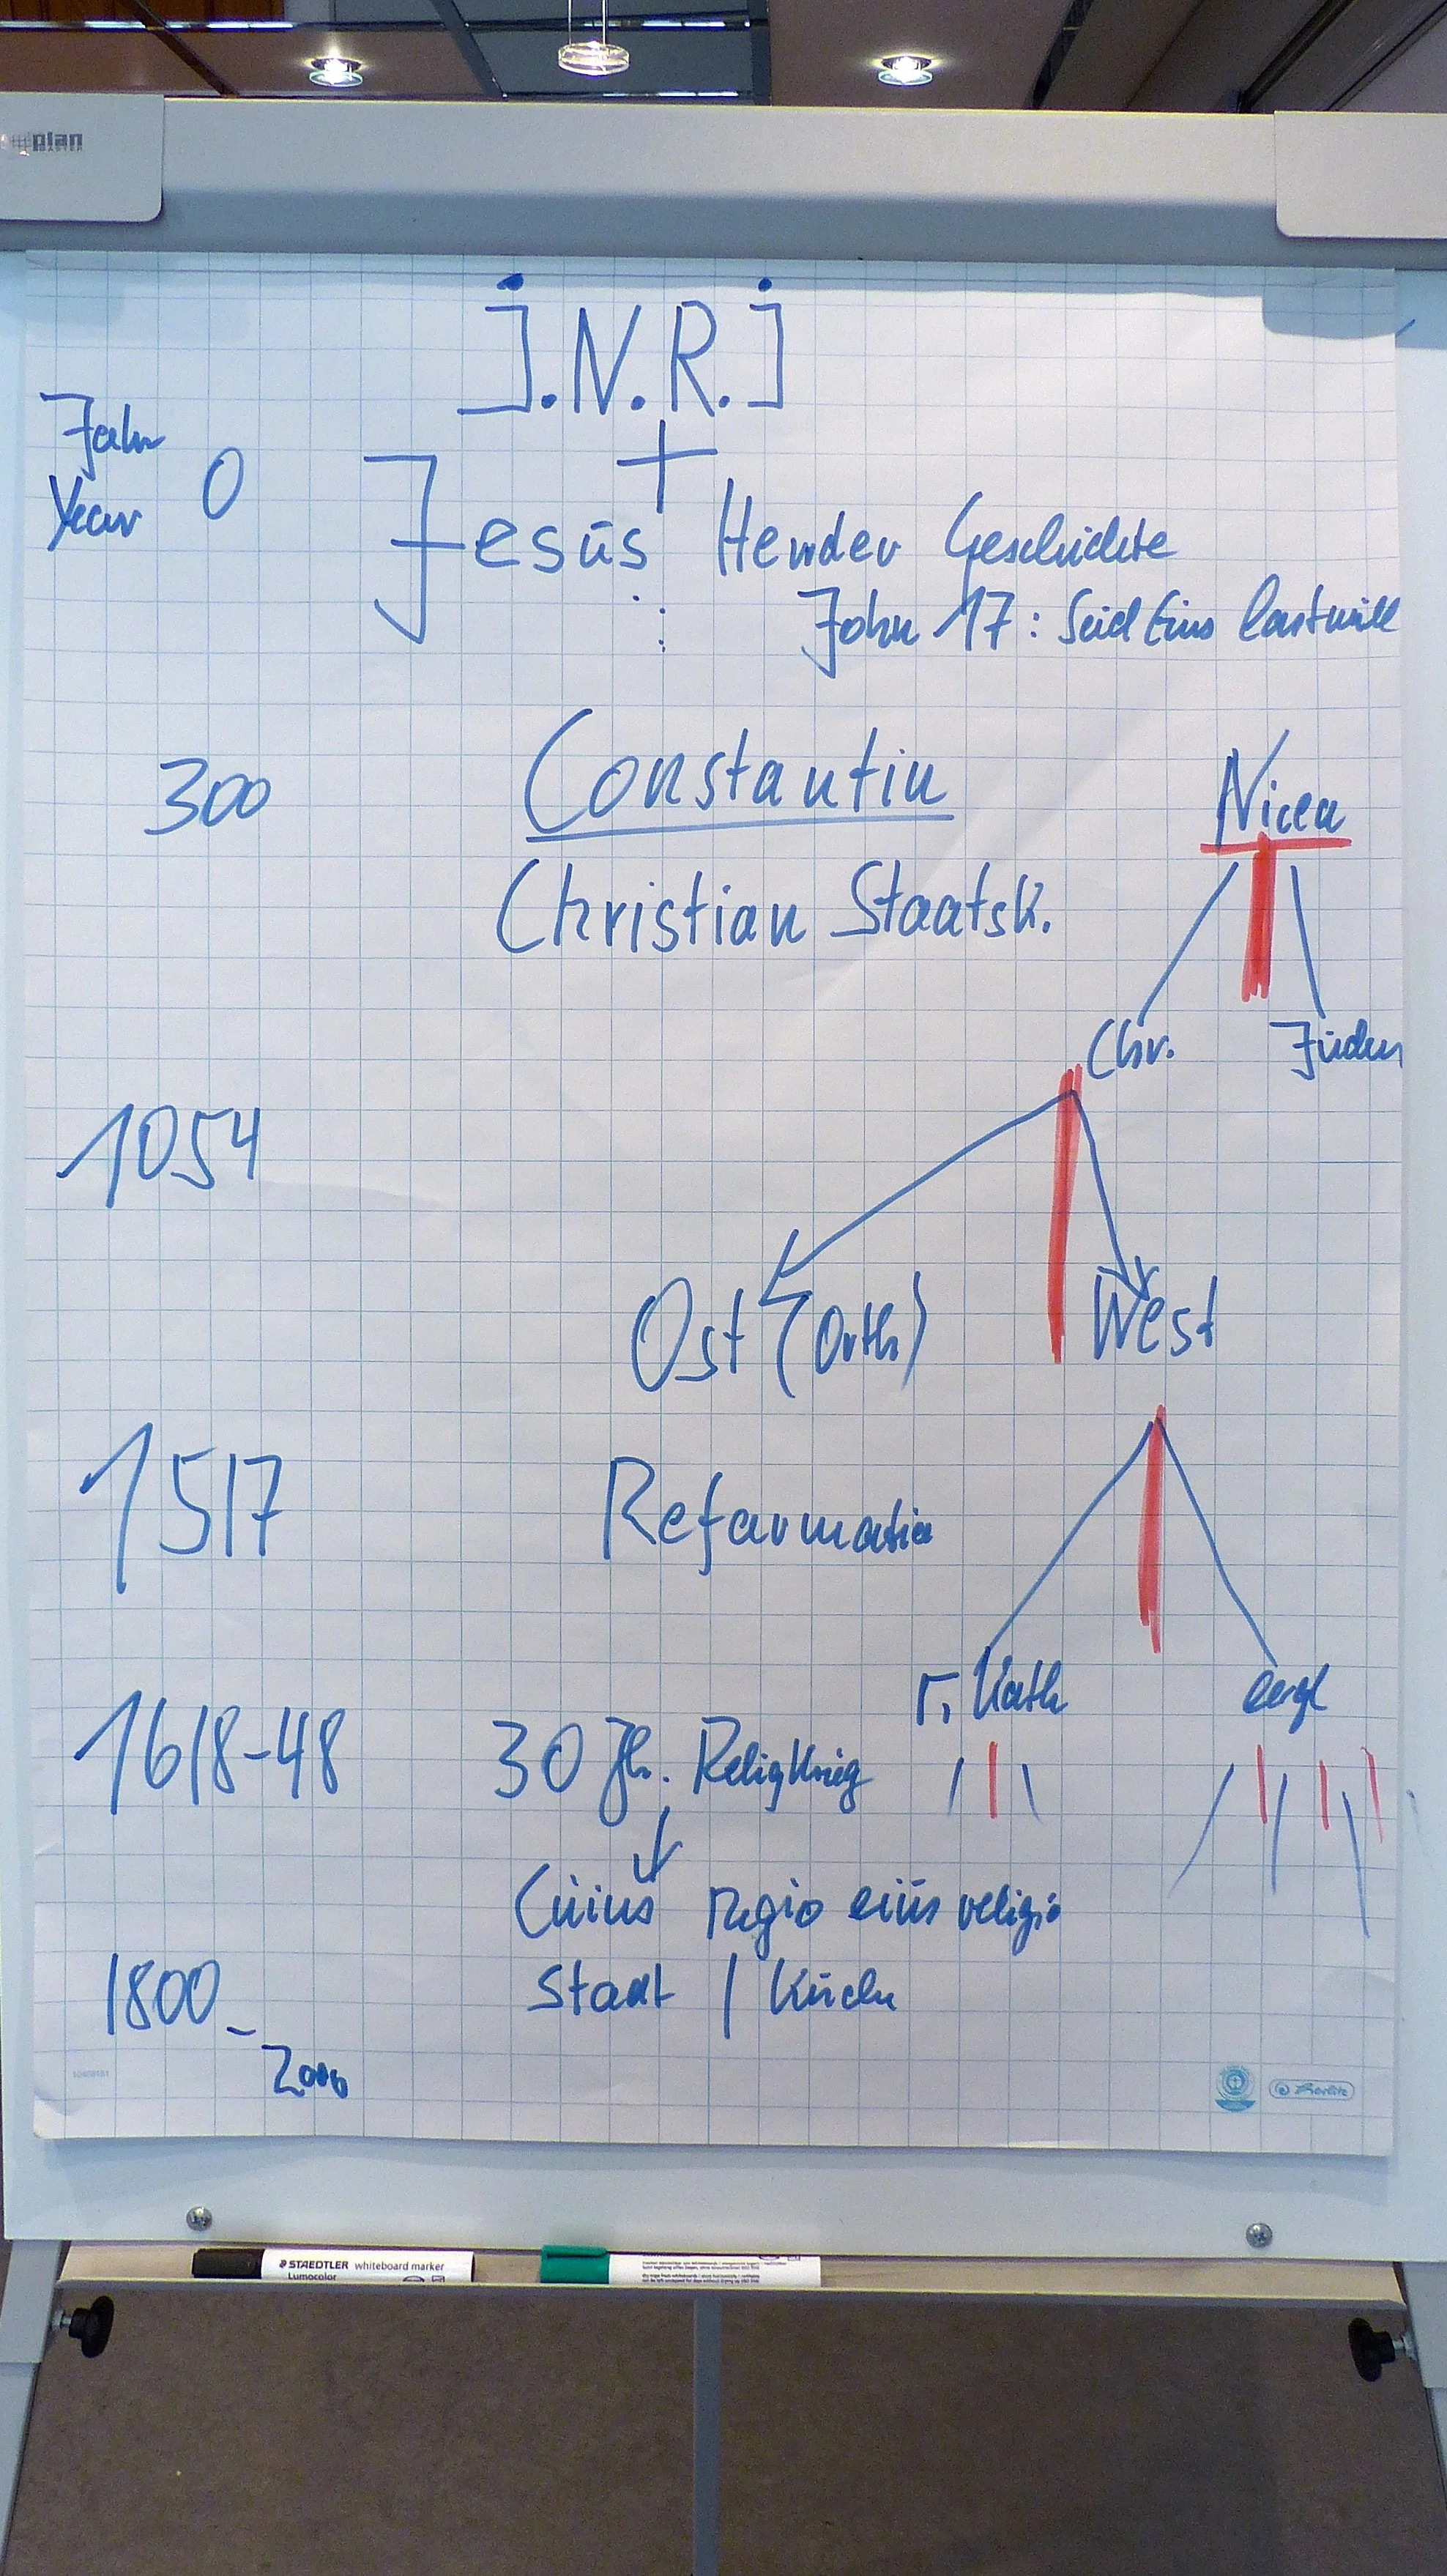 plan
J.N.R.J
Jahr
Year 0
Jesus Herr der Geschichte
John 17: Seid Eins last will
300 Constantin Nicea
Christian Staatsk.
Chr. Juden
1054
Ost (Orth) West
1517 Reformation
r. Kath evgl
1618-48 30 Jh. Religkrieg
Cuius regio eius religio
1800- Staat / Kirche
2000
Herlitz
STAEDTLER whiteboard marker
Lumocolor